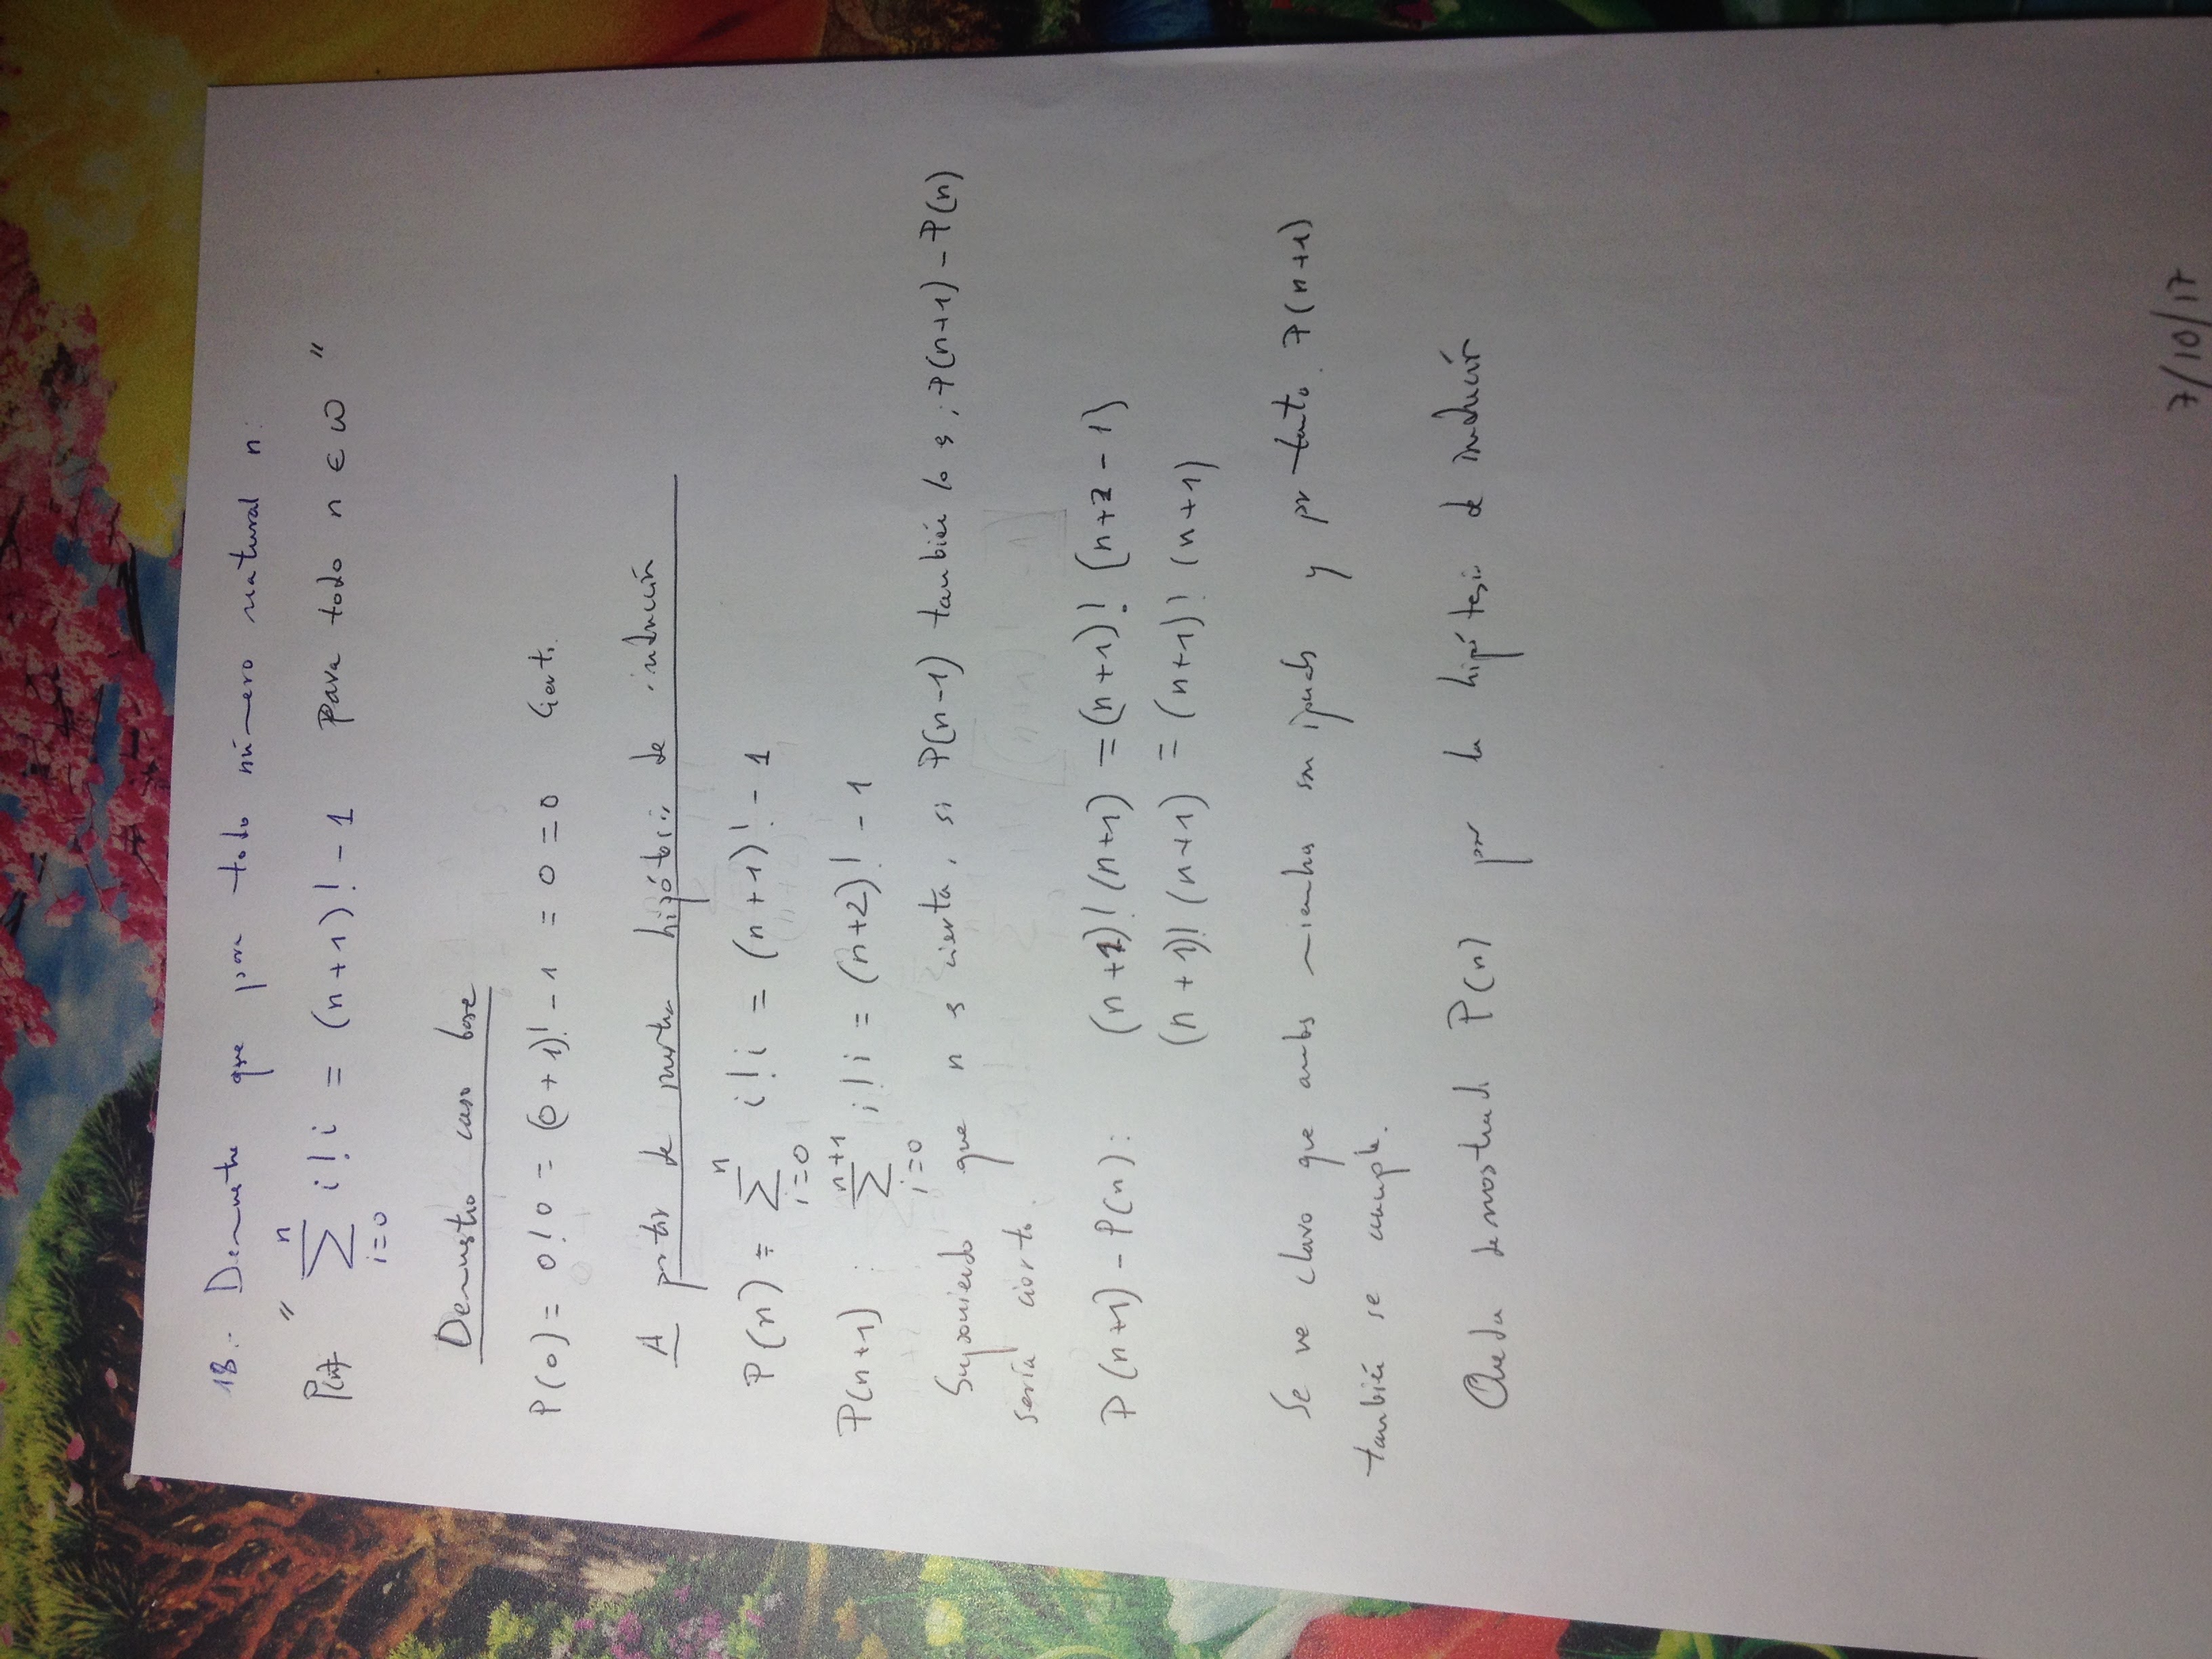 18.- Demuestre que para todo número natural n:
P(n)= " ∑_{i=0}^{n} i! i = (n+1)! - 1 para todo n ∈ ω "
Demuestro caso base
P(0) = 0! 0 = (0+1)! - 1 = 0 = 0 Cierto.
A partir de nuestra hipótesis de inducción
P(n) = ∑_{i=0}^{n} i! i = (n+1)! - 1
P(n+1) : ∑_{i=0}^{n+1} i! i = (n+2)! - 1
Suponiendo que n es cierta, si P(n-1) también lo es, P(n+1) - P(n)
sería cierto.
P(n+1) - P(n): (n+1)! (n+1) = (n+1)! (n+2-1)
(n+1)! (n+1) = (n+1)! (n+1)
Se ve claro que ambos miembros son iguales y por tanto P(n+1)
también se cumple.
Queda demostrado P(n) por la hipótesis de inducción
7/10/17